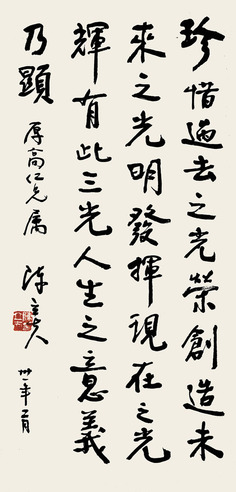 珍惜過去之光榮創造未
來之光明發揮現在之光
輝有此三光人生之意義
乃顯
厚高仁兄属
陳立夫
卅一年二月